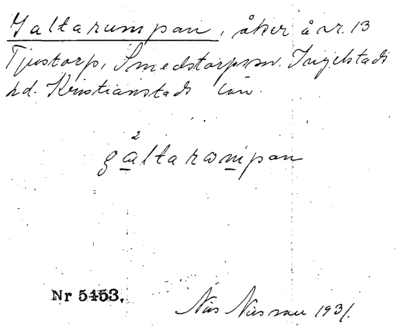 Galtarumpan, åker å nr. 13
Tjustorp, Smedstorp sn. Ingelstads
hd. Kristianstads län.
2
galtarompan
Nr 5453.
Nils Nilsson 1931.